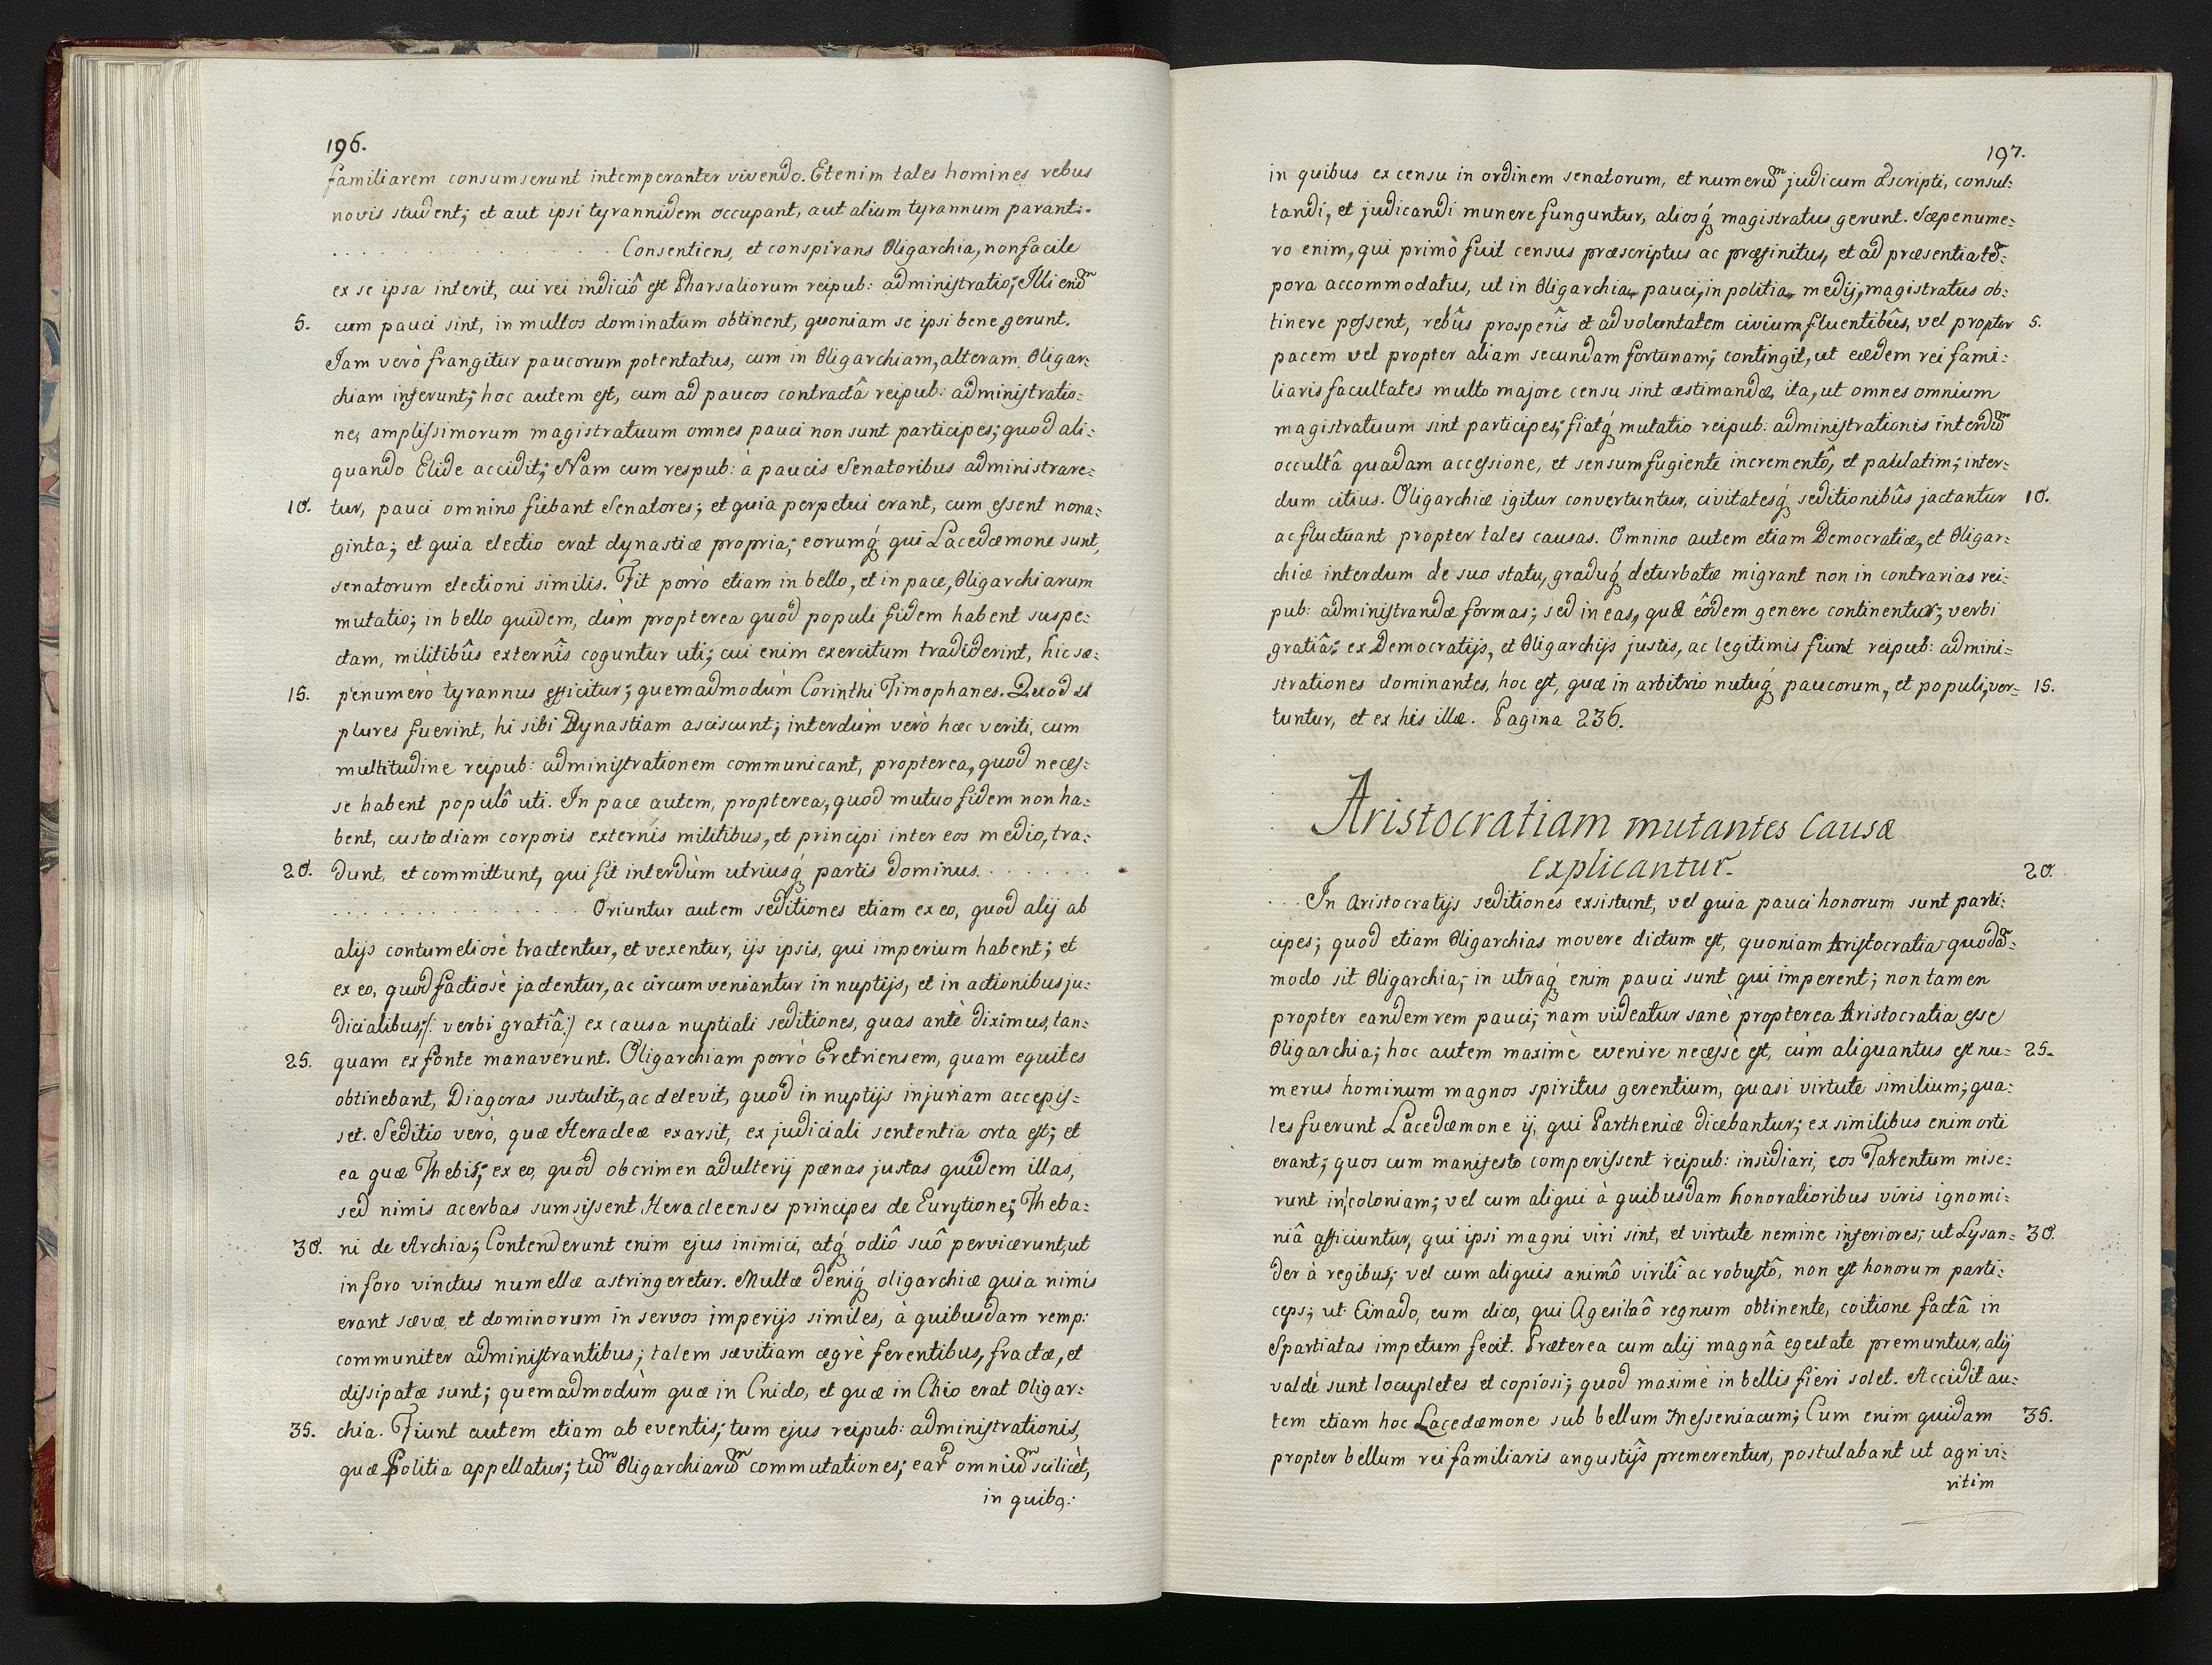 196.
familiarem consumserunt intemperanter vivendo. Etenim tales homines rebus
novis student; et aut ipsi tyrannidem occupant, aut alium tyrannum parant:.
. . . . . . . . . . Consentiens, et conspirans Oligarchia, non facile
ex se ipsa interit, cui rei indiciô est Pharsaliorum reipub: administratio; Illi enim
5. cum pauci sint, in multos dominatum obtinent, quoniam se ipsi bene gerunt.
Iam verò frangitur paucorum potentatus, cum in Oligarchiam, alteram Oligar:
chiam inserunt; hoc autem est, cum ad paucos contractâ reipub: administratio:
ne, amplissimorum magistratuum omnes pauci non sunt participes; quod ali:
quando Elide accidit; Nam cum respub: à paucis Senatoribus administrare:
10. tur, pauci omnino fiebant Senatores; et quia perpetui erant, cum essent nona:
ginta; et quia electio erat dynastiæ propria; eorumq́ qui Lacedæmone sunt,
senatorum electioni similis. Fit porrò etiam in bello, et in pace, Oligarchiarum
mutatio; in bello quidem, dùm propterea quod populi fidem habent suspe:
ctam, militibûs externîs coguntur uti; cui enim exercitum tradiderint, hic sæ:
15. penumerò tyrannus efficitur; quemadmodùm Corinthi Timophanes. Quod si
plures fuerint, hi sibi Dynastiam asciscunt; interdùm verò hæc veriti, cum
multitudine reipub: administrationem communicant, propterea, quod neces:
se habent populô uti. In pace autem, propterea, quod mutuo fidem non ha:
bent, custodiam corporis externîs militibus, et principi inter eos medio, tra:
20. dunt, et committunt, qui fit interdùm utriusq́ partis dominus. . . . . . .
. . . . . . . . . . Oriuntur autem seditiones etiam ex eo, quod alij ab
alijs contumeliosè tractentur, et vexentur, ijs ipsis, qui imperium habent; et
ex eo, quod factiosè jactentur, ac circumveniantur in nuptijs, et in actionibus ju:
dicialibus; /: verbi gratiâ :/ ex causa nuptiali seditiones, quas antè diximus, tan:
25. quam ex fonte manaverunt. Oligarchiam porrò Eretriensem, quam equites
obtinebant, Diagoras sustulit, ac delevit, quod in nuptijs injuriam accepis:
set. Seditio verò, quæ Heracleæ exarsit, ex judiciali sententia orta est; et
ea quæ Thebis; ex eo, quod ob crimen adulterij pœnas justas quidem illas,
sed nimis acerbas sumsissent Heracleenses principes de Eurytione; Theba:
30. ni de Archia; Contenderunt enim ejus inimici, atq́ odiô suô pervicerunt, ut
in foro vinctus numellæ astringeretur. Multæ deniq́ oligarchiæ quia nimis
erant sævæ, et dominorum in servos imperijs similes, à quibusdam remp:
communiter administrantibus; talem sævitiam ægrè ferentibus, fractæ, et
dissipatæ sunt; quemadmodùm quæ in Cnido, et quæ in Chio erat Oligar:
35. chia. Fiunt autem etiam ab eventis; tum ejus reipub: administrationis,
quæ Politia appellatur; tum Oligarchiarum commutationes; ear omnium scilicèt,
in quibꝰ:
197.
in quibus ex censu in ordinem senatorum, et numerum judicum adscripti, consul:
tandi, et judicandi munere funguntur, aliosq́ magistratus gerunt. Sæpenume:
ro enim, qui primò fuit census præscriptus ac præfinitus, et ad præsentia tē:
pora accommodatus, ut in Oligarchia, pauci, in politia, medij, magistratus ob:
tinere possent, rebûs prosperîs et ad voluntatem civium fluentibûs, vel propter 5.
pacem vel propter aliam secundam fortunam; contingit, ut eædem rei fami:
liaris facultates multo majore censu sint æstimandæ, ita, ut omnes omnium
magistratuum sint participes; fiatq́ mutatio reipub: administrationis interdum
occultâ quadam accessione, et sensum fugiente incrementô, et paulatim; inter:
dum citius. Oligarchiæ igitur convertuntur, civitatesq́ seditionibûs jactantur 10.
ac fluctuant propter tales causas. Omnino autem etiam Democratiæ, et Oligar:
chiæ interdum de suo statu, graduq́ deturbatæ migrant non in contrarias rei:
pub: administrandæ formas; sed in eas, quæ eôdem genere continentur; verbi
gratiâ; ex Democratijs, et Oligarchijs justis, ac legitimis fiunt reipub: admini:
strationes dominantes, hoc est, quæ in arbitrio nutuq́ paucorum, et populi, ver: 15.
tuntur, et ex his illæ. Pagina 236.
Aristocratiam mutantes causæ
explicantur. 20.
. . . In Aristocratijs seditiones exsistunt, vel quia pauci honorum sunt parti:
cipes; quod etiam Oligarchias movere dictum est, quoniam Aristocratia quodā:
modo sit Oligarchia; in utraq́ enim pauci sunt qui imperent; non tamen
propter eandem rem pauci; nam videatur sanè propterea Aristocratia esse
Oligarchia; hoc autem maximè evenire necessè est, cùm aliquantus est nu: 25.
merus hominum magnos spiritus gerentium, quasi virtute similium; qua:
les fuerunt Lacedæmone ij, qui Partheniæ dicebantur; ex similibus enim orti
erant; quos cum manifesto comperissent reipub: insidiari, eos Tarentum mise:
runt in coloniam; vel cum aliqui à quibusdam honoratioribus viris ignomi:
niâ afficiuntur, qui ipsi magni viri sint, et virtute nemine inferiores; ut Lysan: 30.
der à regibus; vel cum aliquis animô virilî ac robustô, non est honorum parti:
ceps; ut Cinado, eum dico, qui Agesilaô regnum obtinente, coitione factâ in
Spartiatas impetum fecit. Præterea cum alij magnâ egestate premuntur, alij
valdè sunt locupletes et copiosi; quod maximè in bellis fieri solet. Accidit au:
tem etiam hoc Lacedæmone sub bellum Messeniacum; Cum enim quidam 35.
propter bellum rei familiaris angustijs premerentur, postulabant ut agri vi:
ritim